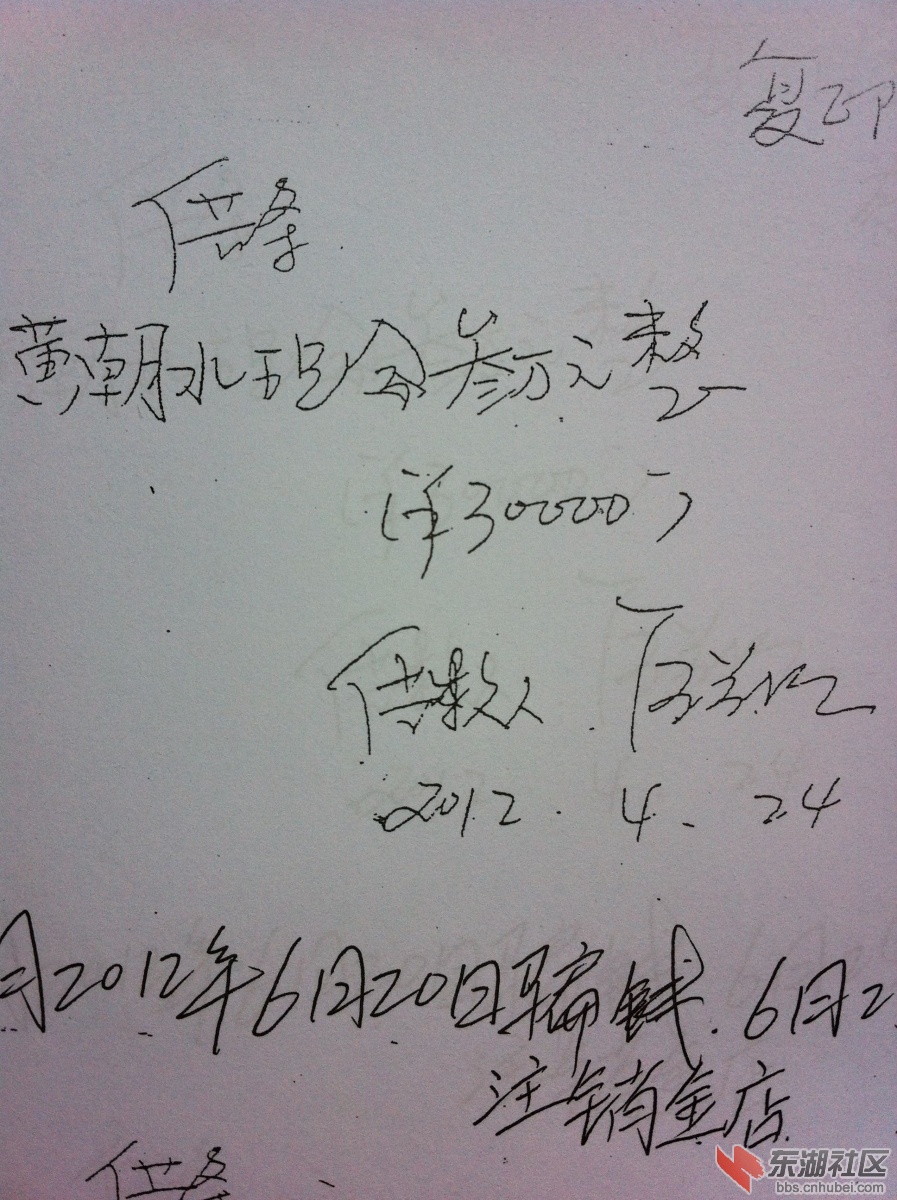 复印
借条
黄朝水现金叁万元整
(洋30000)
借款人
2012.4.24
月2012年6月20日骗钱.6月2
注销金店
借条
东湖社区
bbs.cnhubei.com